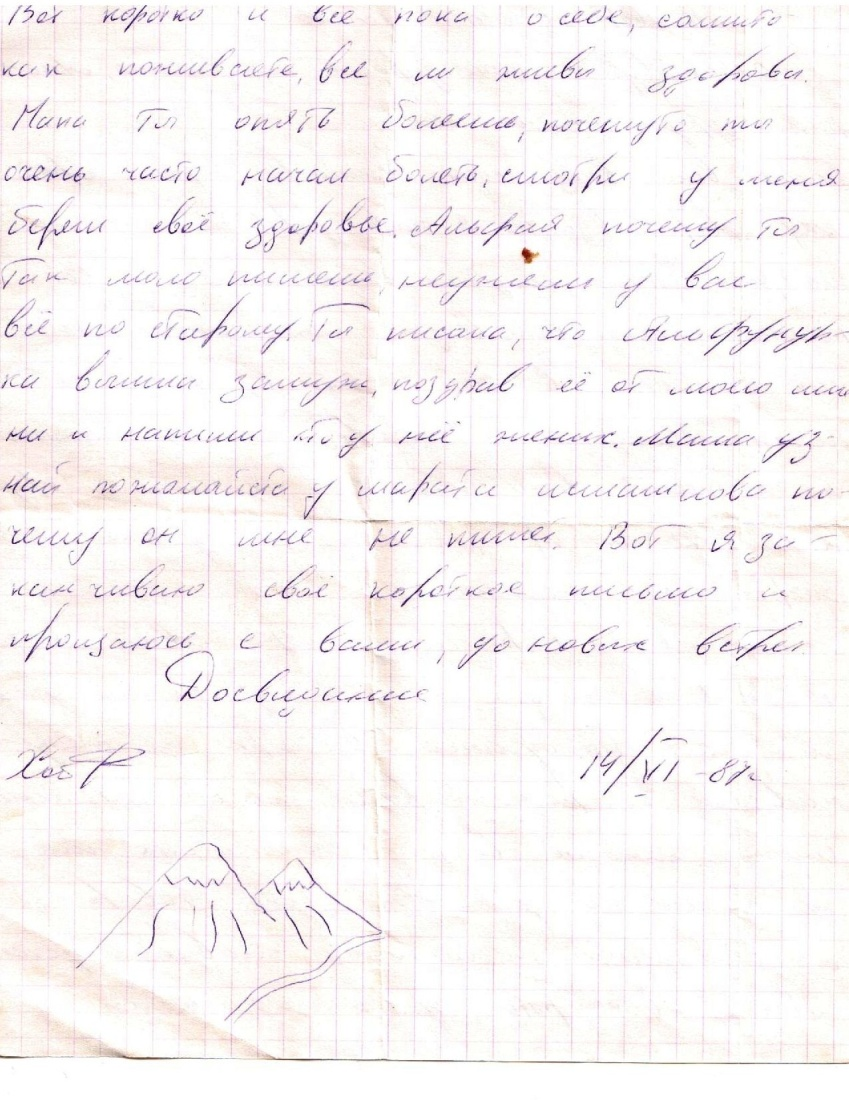 Вот коротко и всё пока о себе, сами то
как поживаете, все ли живы здоровы.
Мама ты опять болееш, почемуто ты
очень часто начал болеть, смотри у меня
береги своё здоровье. Альфия почему ты
так мало пишеш, неужели у вас
всё по старому. Ты писала, что Альфунур-
ка вышла замуж, поздрав её от моего име
ни и напиши кто у неё жених. Маша уз-
най пожалайста у марата исмашлова по-
чему он мне не пишет. Вот я за-
канчиваю своё короткое письмо и
прощаюсь с вами, до новых встреч
Досвидание
14/VI -87г